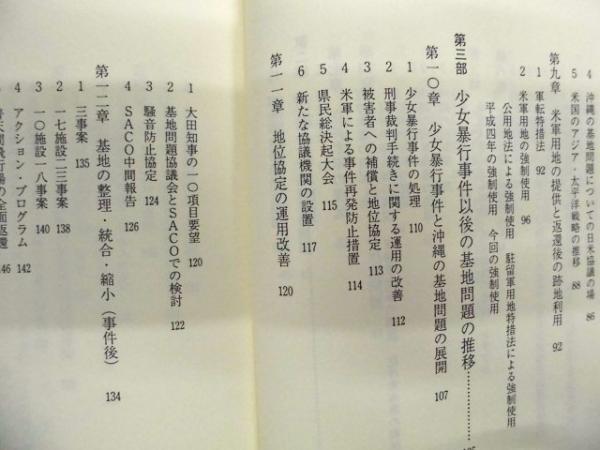 4 沖縄の基地問題についての日米協議の場 86
5 米国のアジア・太平洋戦略の推移 88
第九章 米軍用地の提供と返還後の跡地利用 92
1 軍転特措法 92
2 米軍用地の強制使用 96
公用地法による強制使用 駐留軍用地特措法による強制使用
平成四年の強制使用 今回の強制使用
第三部 少女暴行事件以後の基地問題の推移
第一〇章 少女暴行事件と沖縄の基地問題の展開 107
1 少女暴行事件の処理 110
2 刑事裁判手続きに関する運用の改善 112
3 被害者への補償と地位協定 113
4 米軍による事件再発防止措置 114
5 県民総決起大会 115
6 新たな協議機関の設置 117
第一一章 地位協定の運用改善 120
1 大田知事の一〇項目要望 120
2 基地問題協議会とSACOでの検討 122
3 騒音防止協定 124
4 SACO中間報告 126
第一二章 基地の整理・統合・縮小（事件後） 134
1 三事案 135
2 一七施設二三事案 138
3 一〇施設一八事案 140
4 アクション・プログラム 142
飛行場の全面返還 146